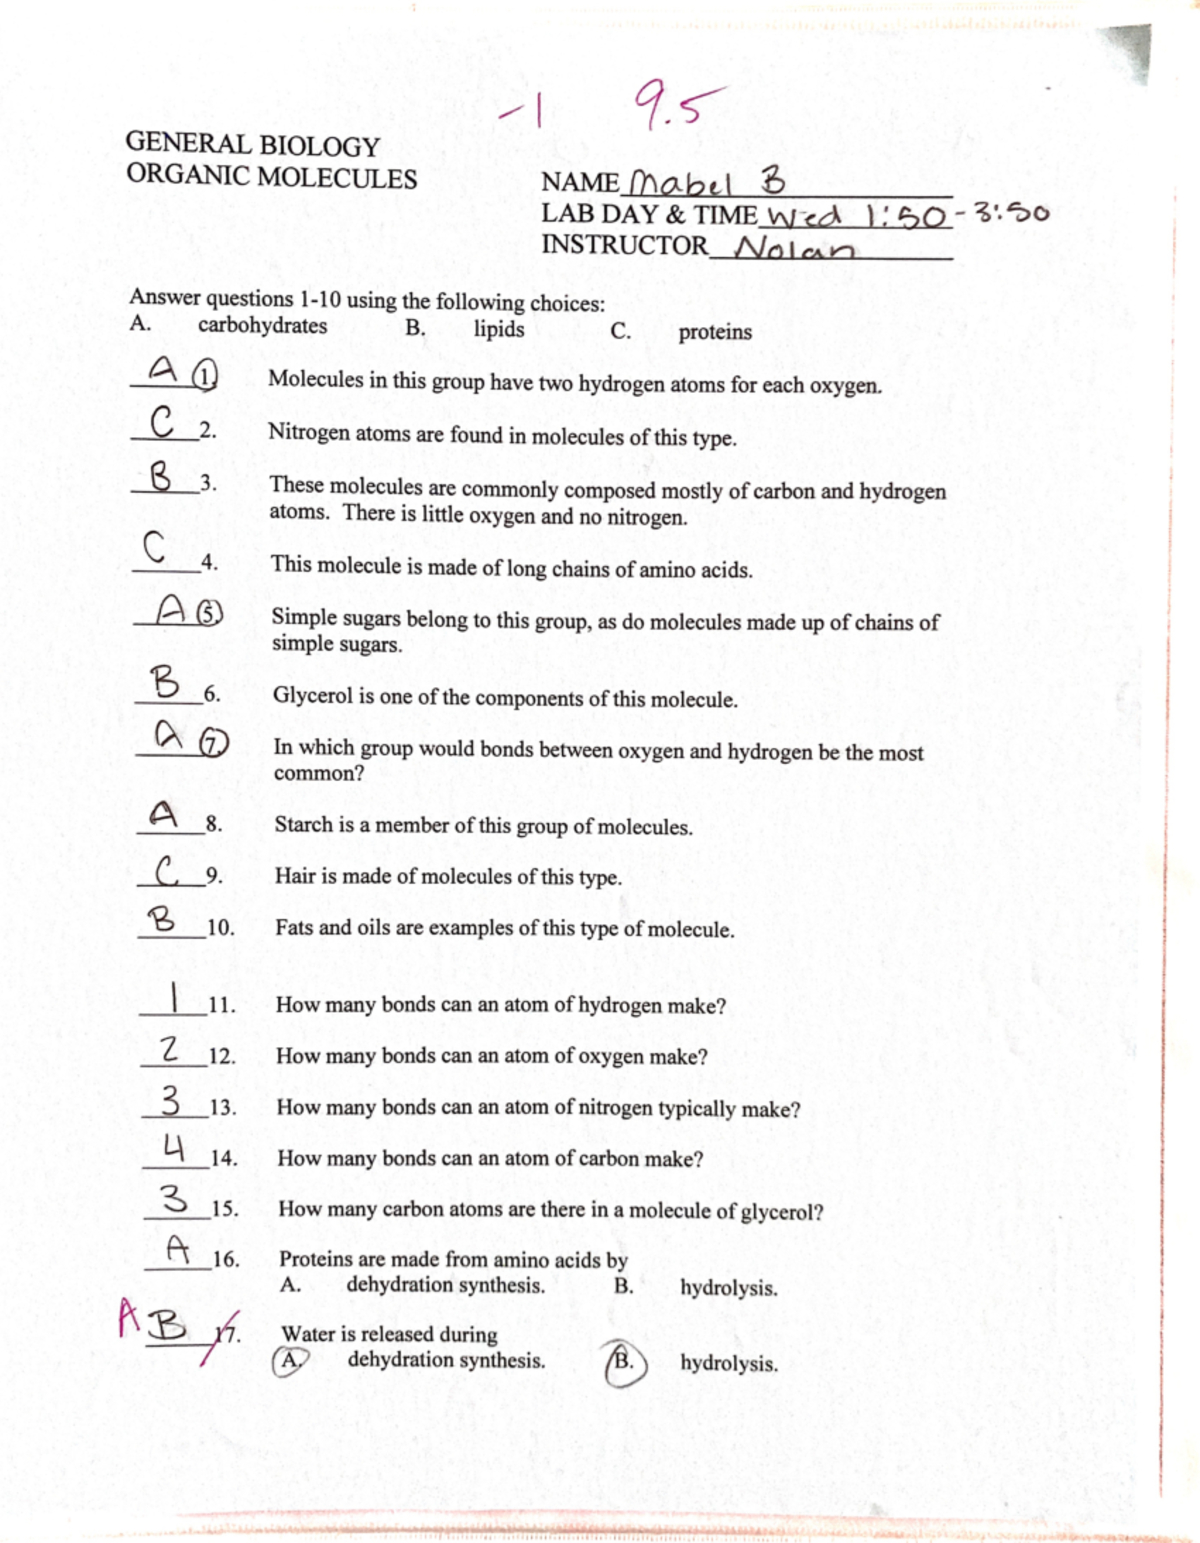 -1 9.5
GENERAL BIOLOGY
ORGANIC MOLECULES
NAME Mabel B
LAB DAY & TIME Wed 1:50-3:50
INSTRUCTOR Nolan
Answer questions 1-10 using the following choices:
A. carbohydrates B. lipids C. proteins
A 1. Molecules in this group have two hydrogen atoms for each oxygen.
C 2. Nitrogen atoms are found in molecules of this type.
B 3. These molecules are commonly composed mostly of carbon and hydrogen
atoms. There is little oxygen and no nitrogen.
C 4. This molecule is made of long chains of amino acids.
A 5. Simple sugars belong to this group, as do molecules made up of chains of
simple sugars.
B 6. Glycerol is one of the components of this molecule.
A 7. In which group would bonds between oxygen and hydrogen be the most
common?
A 8. Starch is a member of this group of molecules.
C 9. Hair is made of molecules of this type.
B 10. Fats and oils are examples of this type of molecule.
1 11. How many bonds can an atom of hydrogen make?
2 12. How many bonds can an atom of oxygen make?
3 13. How many bonds can an atom of nitrogen typically make?
4 14. How many bonds can an atom of carbon make?
3 15. How many carbon atoms are there in a molecule of glycerol?
A 16. Proteins are made from amino acids by
A. dehydration synthesis. B. hydrolysis.
A B 17. Water is released during
A. dehydration synthesis. B. hydrolysis.